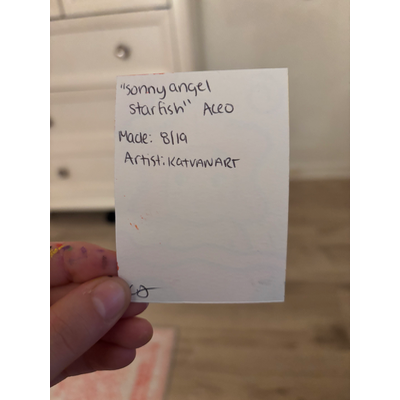 "sonny angel
starfish" ACEO
Made: 8/19
Artist: KATVANART